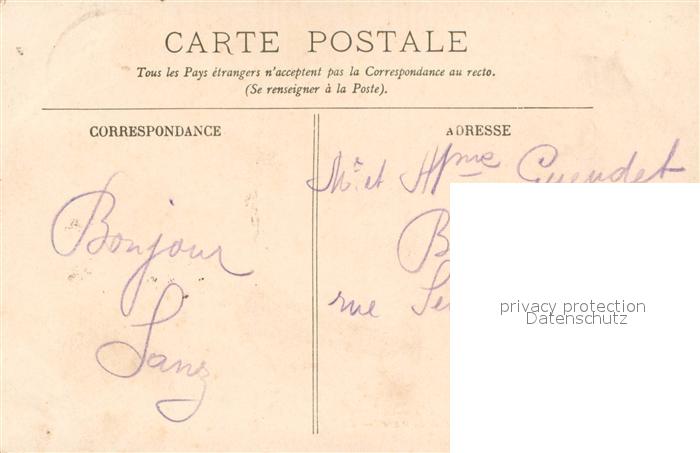 CARTE POSTALE
Tous les Pays étrangers n'acceptent pas la Correspondance au recto.
(Se renseigner à la Poste).
CORRESPONDANCE
ADRESSE
Mr et Mme Guendet
Bonjour
rue
privacy protection
Datenschutz